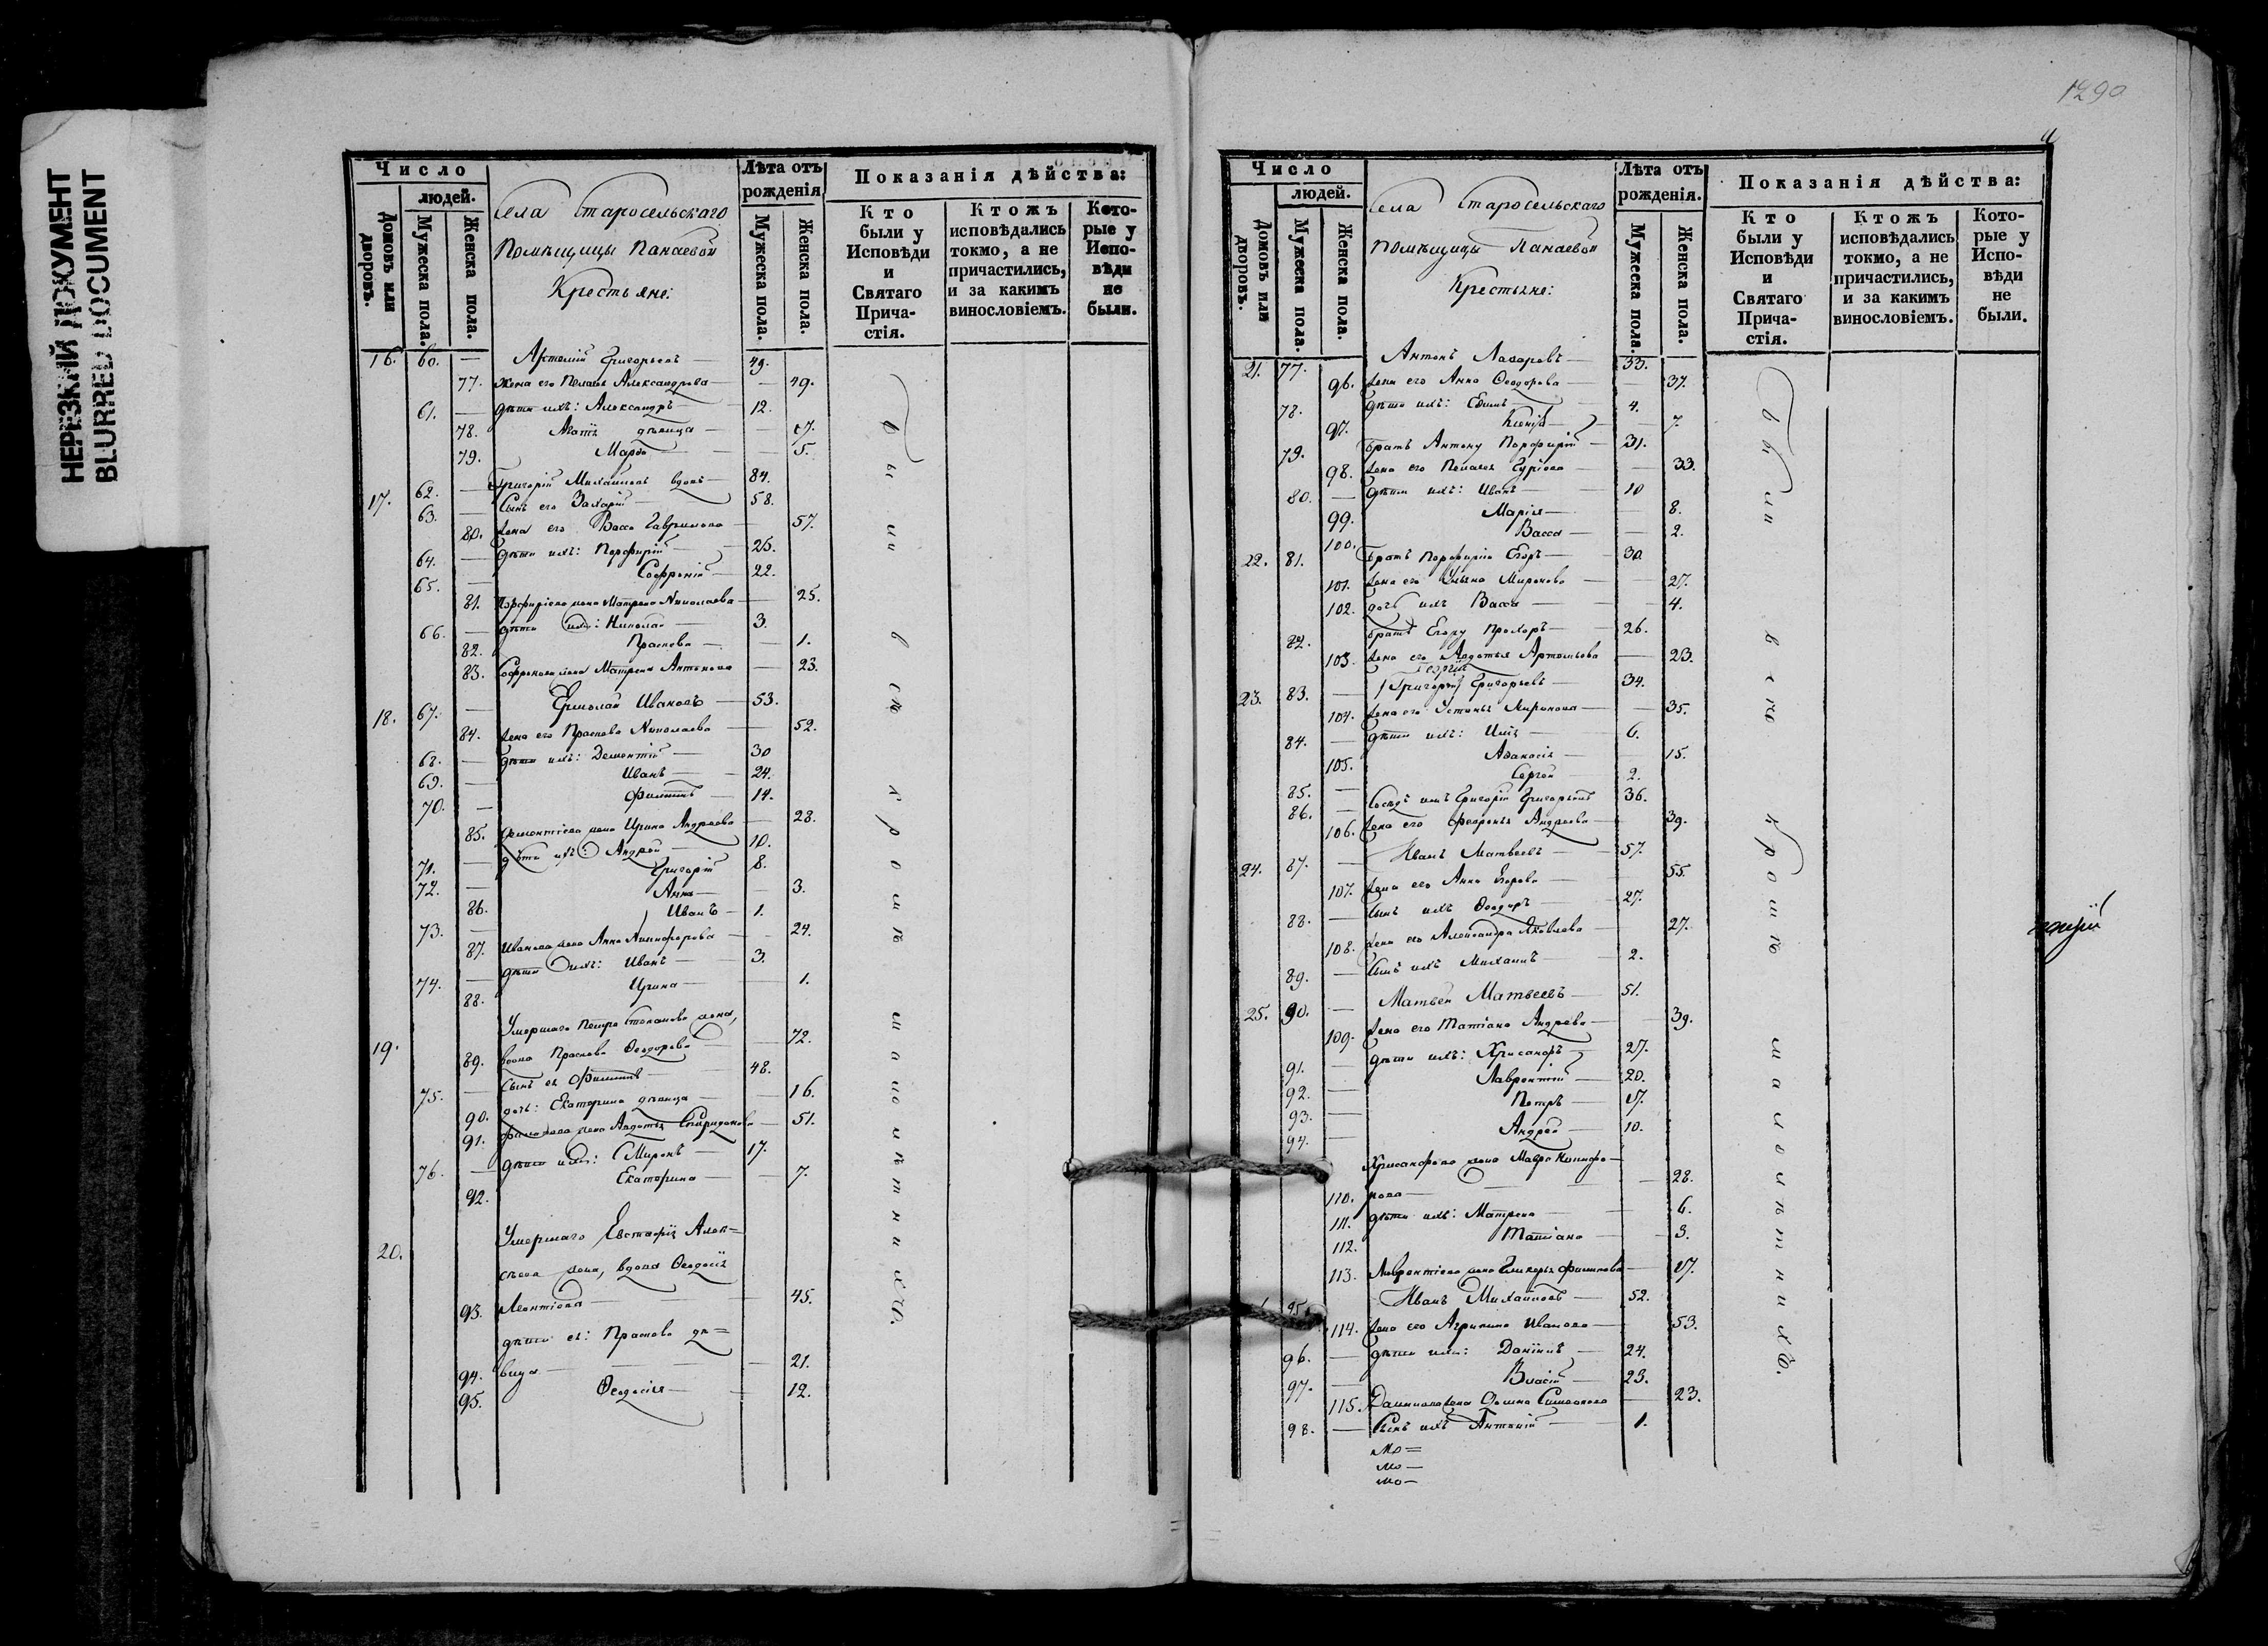 НЕРЕЗКИЙ ДОКУМЕНТ
BLURRED DOCUMENT
Число
людей.
Домовъ или дворовъ.
Мужеска пола.
Женска пола.
Села Старосельскаго
Помѣщицы Панаевой
Крестьяне:
Лѣта отъ рожденія
Мужеска пола.
Женска пола.
Показанія дѣйства:
Кто были у Исповѣди и Святаго Причастія.
Ктожъ исповѣдались токмо, а не причастились, и за какимъ винословіемъ.
Которые у Исповѣди не были.
16. 60. — Артемій Григорьевъ — 49.
77. Жена его Пелагея Александрова — 49.
61. — дѣти ихъ: Александръ — 12.
78. дѣвица — 17.
79. Марѳа — 5.
17. 62. — Григорій Михайловъ вдовъ — 84.
63. — Сынъ его Захарій — 58.
80. жена его Васса Гаврилова — 57.
64. — дѣти ихъ: Порфирій — 25.
65. — Софроній — 22.
81. Порфиріева жена Матрена Николаева — 25.
66. — дѣти ихъ: Николай — 3.
82. Прасковья — 1.
83. Софроньева жена Матрена Антонова — 23.
18. 67. — Ермолай Ивановъ — 53.
84. жена его Прасковья Николаева — 52.
68. — дѣти ихъ: Дементій — 30
69. — Иванъ — 24.
70. — Филиппъ — 14.
85. Дементіева жена Ирина Андреева — 28.
71. — дѣти ихъ: Андрей — 10.
72. — Григорій 8.
86. Анна — 3.
73. — Иванъ — 1.
87. Иванова жена Анна Никифорова — 24.
74. — дѣти ихъ: Иванъ — 3.
88. Ирина — 1.
19. Умершаго Петра Степанова жена,
89. вдова Прасковья Ѳеодорова — 72.
75. — Сынъ ея Филиппъ — 48.
90. дочь: Екатерина дѣвица — 16.
91. Филиппова жена Авдотья Спиридонова — 51.
76. — дѣти ихъ: Миронъ — 17.
92. Екатерина — 7.
20. Умершаго Евстафія Алек=
сѣева жена, вдова Ѳеодосія
93. Леонтіева — 45.
дѣти ея: Прасковья дѣ=
94. вица — 21.
95. Ѳеодосія — 12.
Были всѣ кромѣ малолѣтнихъ.
1290
Число
людей.
Домовъ или дворовъ.
Мужеска пола.
Женска пола.
Села Старосельскаго
Помѣщицы Панаевой
Крестьяне:
Лѣта отъ рожденія.
Мужеска пола.
Женска пола.
Показанія дѣйства:
Кто были у Исповѣди и Святаго Причастія.
Ктожъ исповѣдались токмо, а не причастились, и за какимъ винословіемъ.
Которые у Исповѣди не были.
21. 77. Антонъ Лазаревъ — 33.
96. жена его Анна Ѳеодорова — 37.
78. дѣти ихъ: Ефимъ — 4.
97. Ксенія — 7.
79. Братъ Антону Порфирій — 31.
98. жена его Пелагея Гурьева — 33.
80. — дѣти ихъ: Иванъ — 10
99. Марія — 8.
100. Васса — 2.
22. 81. Братъ Порфирію Егоръ — 30.
101. жена его Ульяна Миронова — 27.
102. дочь ихъ Васса — 4.
82. братъ Егору Прохоръ — 26.
103. жена его Авдотья Артемьева — 23.
Георгій
23. 83. — (Григорій) Григорьевъ — 34.
104. жена его Устинья Миронова — 35.
84. — дѣти ихъ: Илія — 6.
105. Аѳанасія — 15.
85. — Сергей — 2.
86. — Сосѣдъ ихъ Григорій Григорьевъ 36.
106. жена его Феврония Андреева — 39.
24. 87. — Иванъ Матвеевъ — 57.
107. жена его Анна Егорова — 55.
88. — Сынъ ихъ Ѳеодоръ — 27.
108. жена его Александра Яковлева — 27.
89. — Сынъ ихъ Михаилъ — 2.
25. 90. — Матвей Матвеевъ — 51.
109. жена его Татіана Андреева — 39.
91. — дѣти ихъ: Хрисанфъ — 27.
92. — Лаврентій — 20.
93. — Петръ — 17.
94. — Андрей — 10.
Хрисанфова жена Мавра Никифо—
110. рова — 28.
111. дѣти ихъ: Матрена — 6.
112. Татіана — 3.
113. Лаврентіева жена Гликерья Филиппова — 17.
95. Иванъ Михайловъ — 52.
114. жена его Агрипина Иванова — 53.
96. — дѣти ихъ: Даніилъ — 24.
97. — Власій — 23.
115. Даниилова жена — 23.
98. — Сынъ ихъ Антоній — 1.
Были всѣ кромѣ малолѣтнихъ.